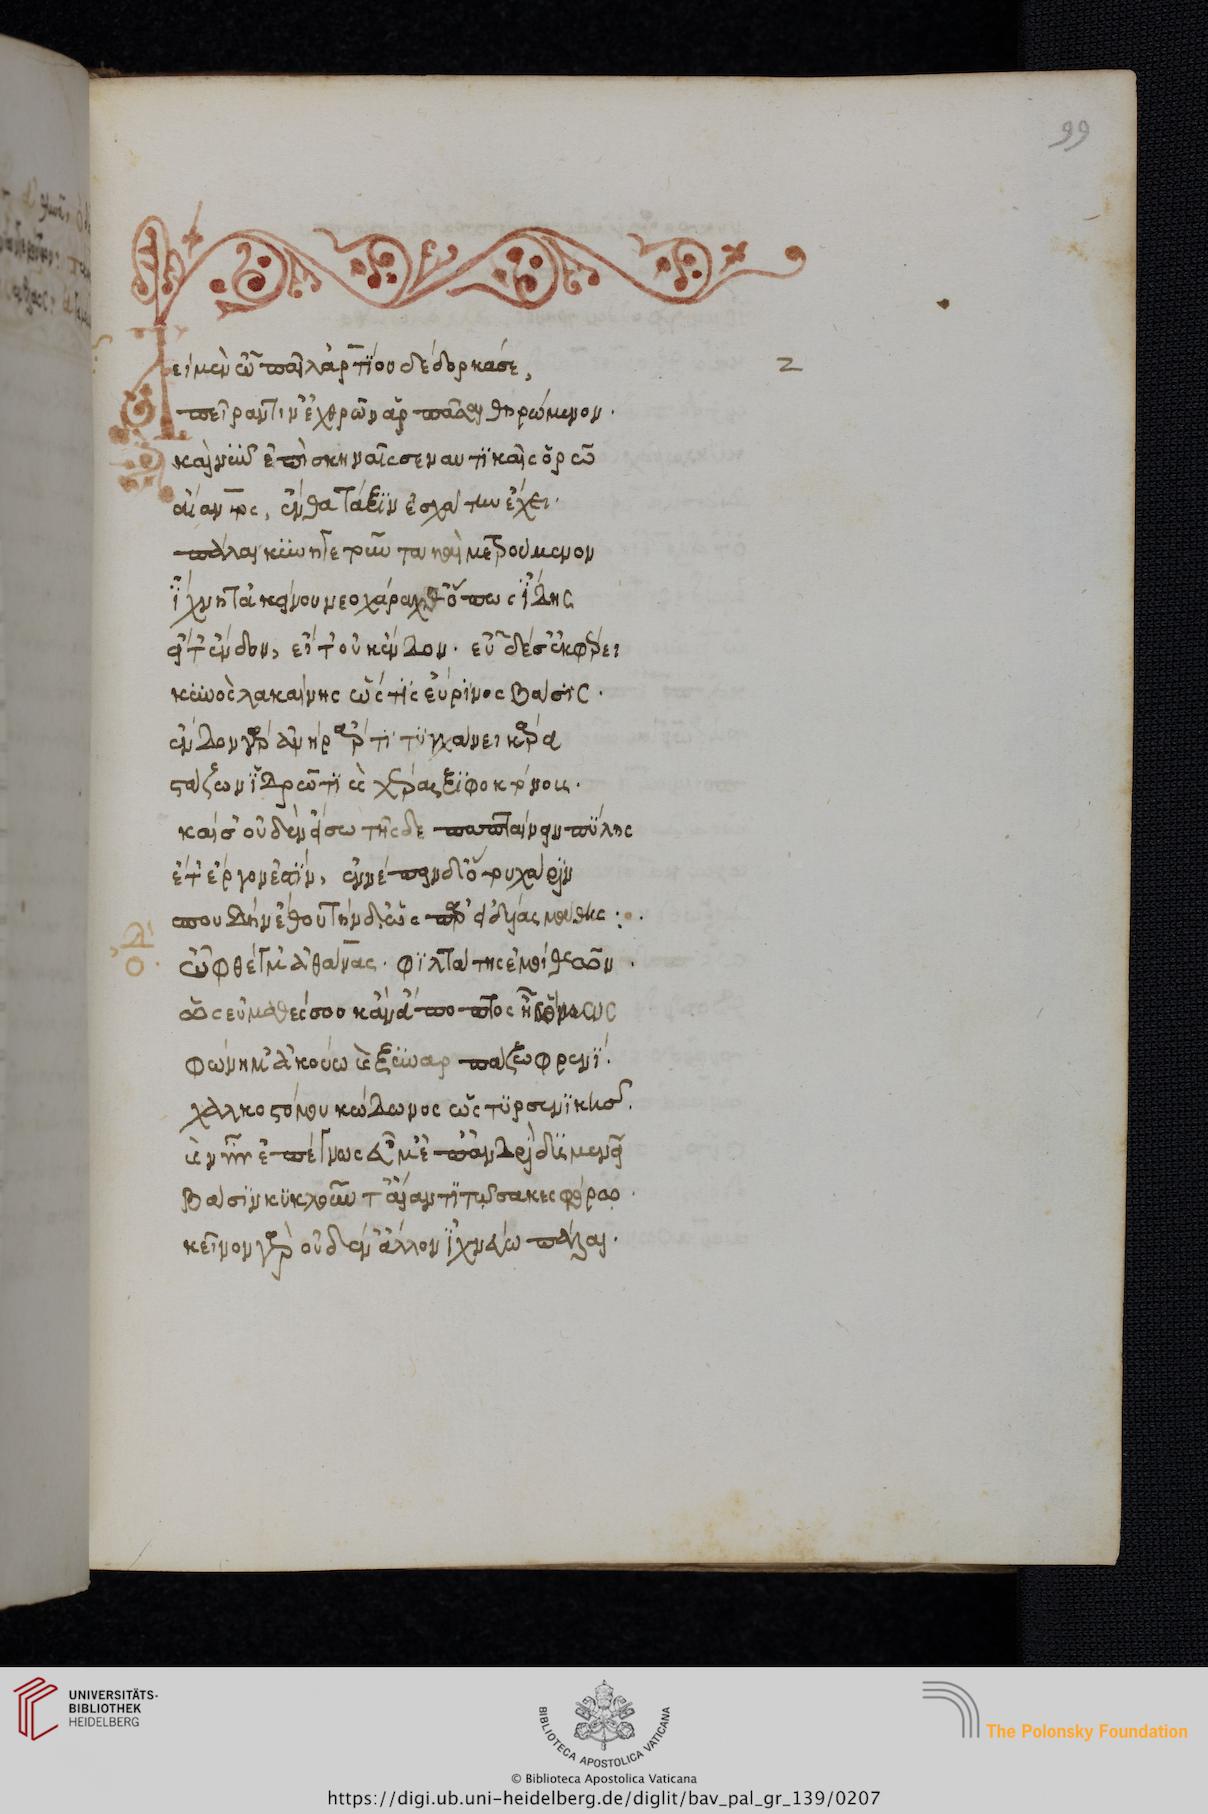 99
Ἀεὶ μὲν ὦ παῖ λαρτίου δέδορκά σε,
2
πεῖραν τιν ἐχθρῶν ἁρπάσαι θηρώμενον·
καὶ νῦν ἐπὶ σκηναῖς σε ναυτικαῖς ὁρῶ
αἴαντος, ἔνθα τάξιν ἐσχάτην ἔχει·
πάλαι κυνηγετοῦντα καὶ μετρούμενον
ἴχνη τὰ κείνου νεοχάραχθ' ὅπως ἴδης
εἴτ' ἔνδον, εἴτ' οὐκ ἔνδον· εὖ δέ σ' ἐκφέρει
κυνὸς λακαίνης ὥς τις εὔρινος βάσις·
ἔνδον γὰρ ἁνὴρ ἄρτι τυγχάνει κάρα
στάζων ἱδρῶτι καὶ χέρας ξιφοκτόνους·
καί σ' οὐδὲν εἴσω τῆσδε παπταίνειν πύλης
ἔτ' ἔργον ἐστίν, ἐννέπειν δ' ὅτου χάριν
σπουδὴν ἔθου τήνδ' ὡς παρ' εἰδυίας μάθης:
ΟΔ
ὦ φθέγμ' ἀθάνας· φιλτάτης ἐμοὶ θεῶν·
ὡς εὐμαθές σου κἂν ἄποπτος ἦς ὅμως
φώνημ' ἀκούω καὶ ξυναρπάζω φρενί·
χαλκοστόμου κώδωνος ὡς τυρσηνικῆς·
καὶ νῦν ἐπέγνως εὖ μ' ἐπ' ἀνδρὶ δυσμενεῖ
βάσιν κυκλοῦντ' αἴαντι τῷ σακεσφόρῳ·
κεῖνον γὰρ οὐδέν' ἄλλον ἰχνεύω πάλαι·
UNIVERSITÄTS-
BIBLIOTHEK
HEIDELBERG
BIBLIOTECA APOSTOLICA VATICANA
The Polonsky Foundation
© Biblioteca Apostolica Vaticana
https://digi.ub.uni-heidelberg.de/diglit/bav_pal_gr_139/0207